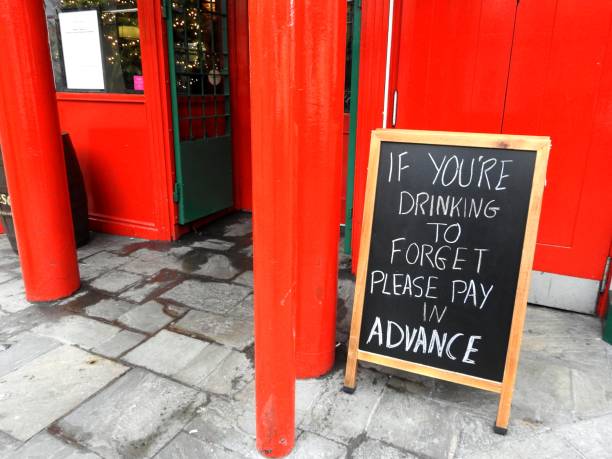 IF YOU'RE
DRINKING
TO
FORGET
PLEASE PAY
IN
ADVANCE